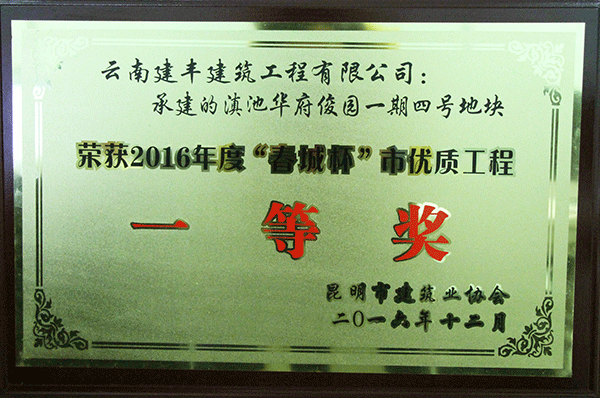 云南建丰建筑工程有限公司：
承建的滇池华府俊园一期四号地块
荣获2016年度“春城杯”市优质工程
一等奖
昆明市建筑业协会
二〇一六年十二月